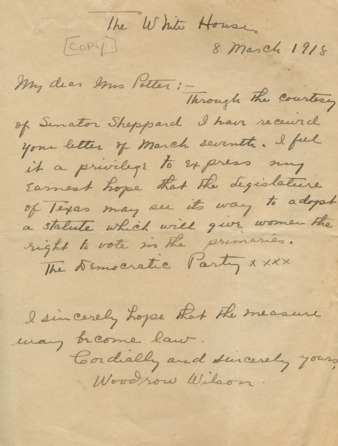 The White House
[COPY]
8 March 1918
My dear Mrs Potter:-
Through the courtesy
of Senator Sheppard I have received
your letter of March seventh. I feel
it a privilege to express my
earnest hope that the Legislature
of Texas may see its way to adopt
a statute which will give women the
right to vote in the primaries.
The Democratic Party xxxx
I sincerely hope that the measure
may become law.
Cordially and sincerely yours,
Woodrow Wilson.